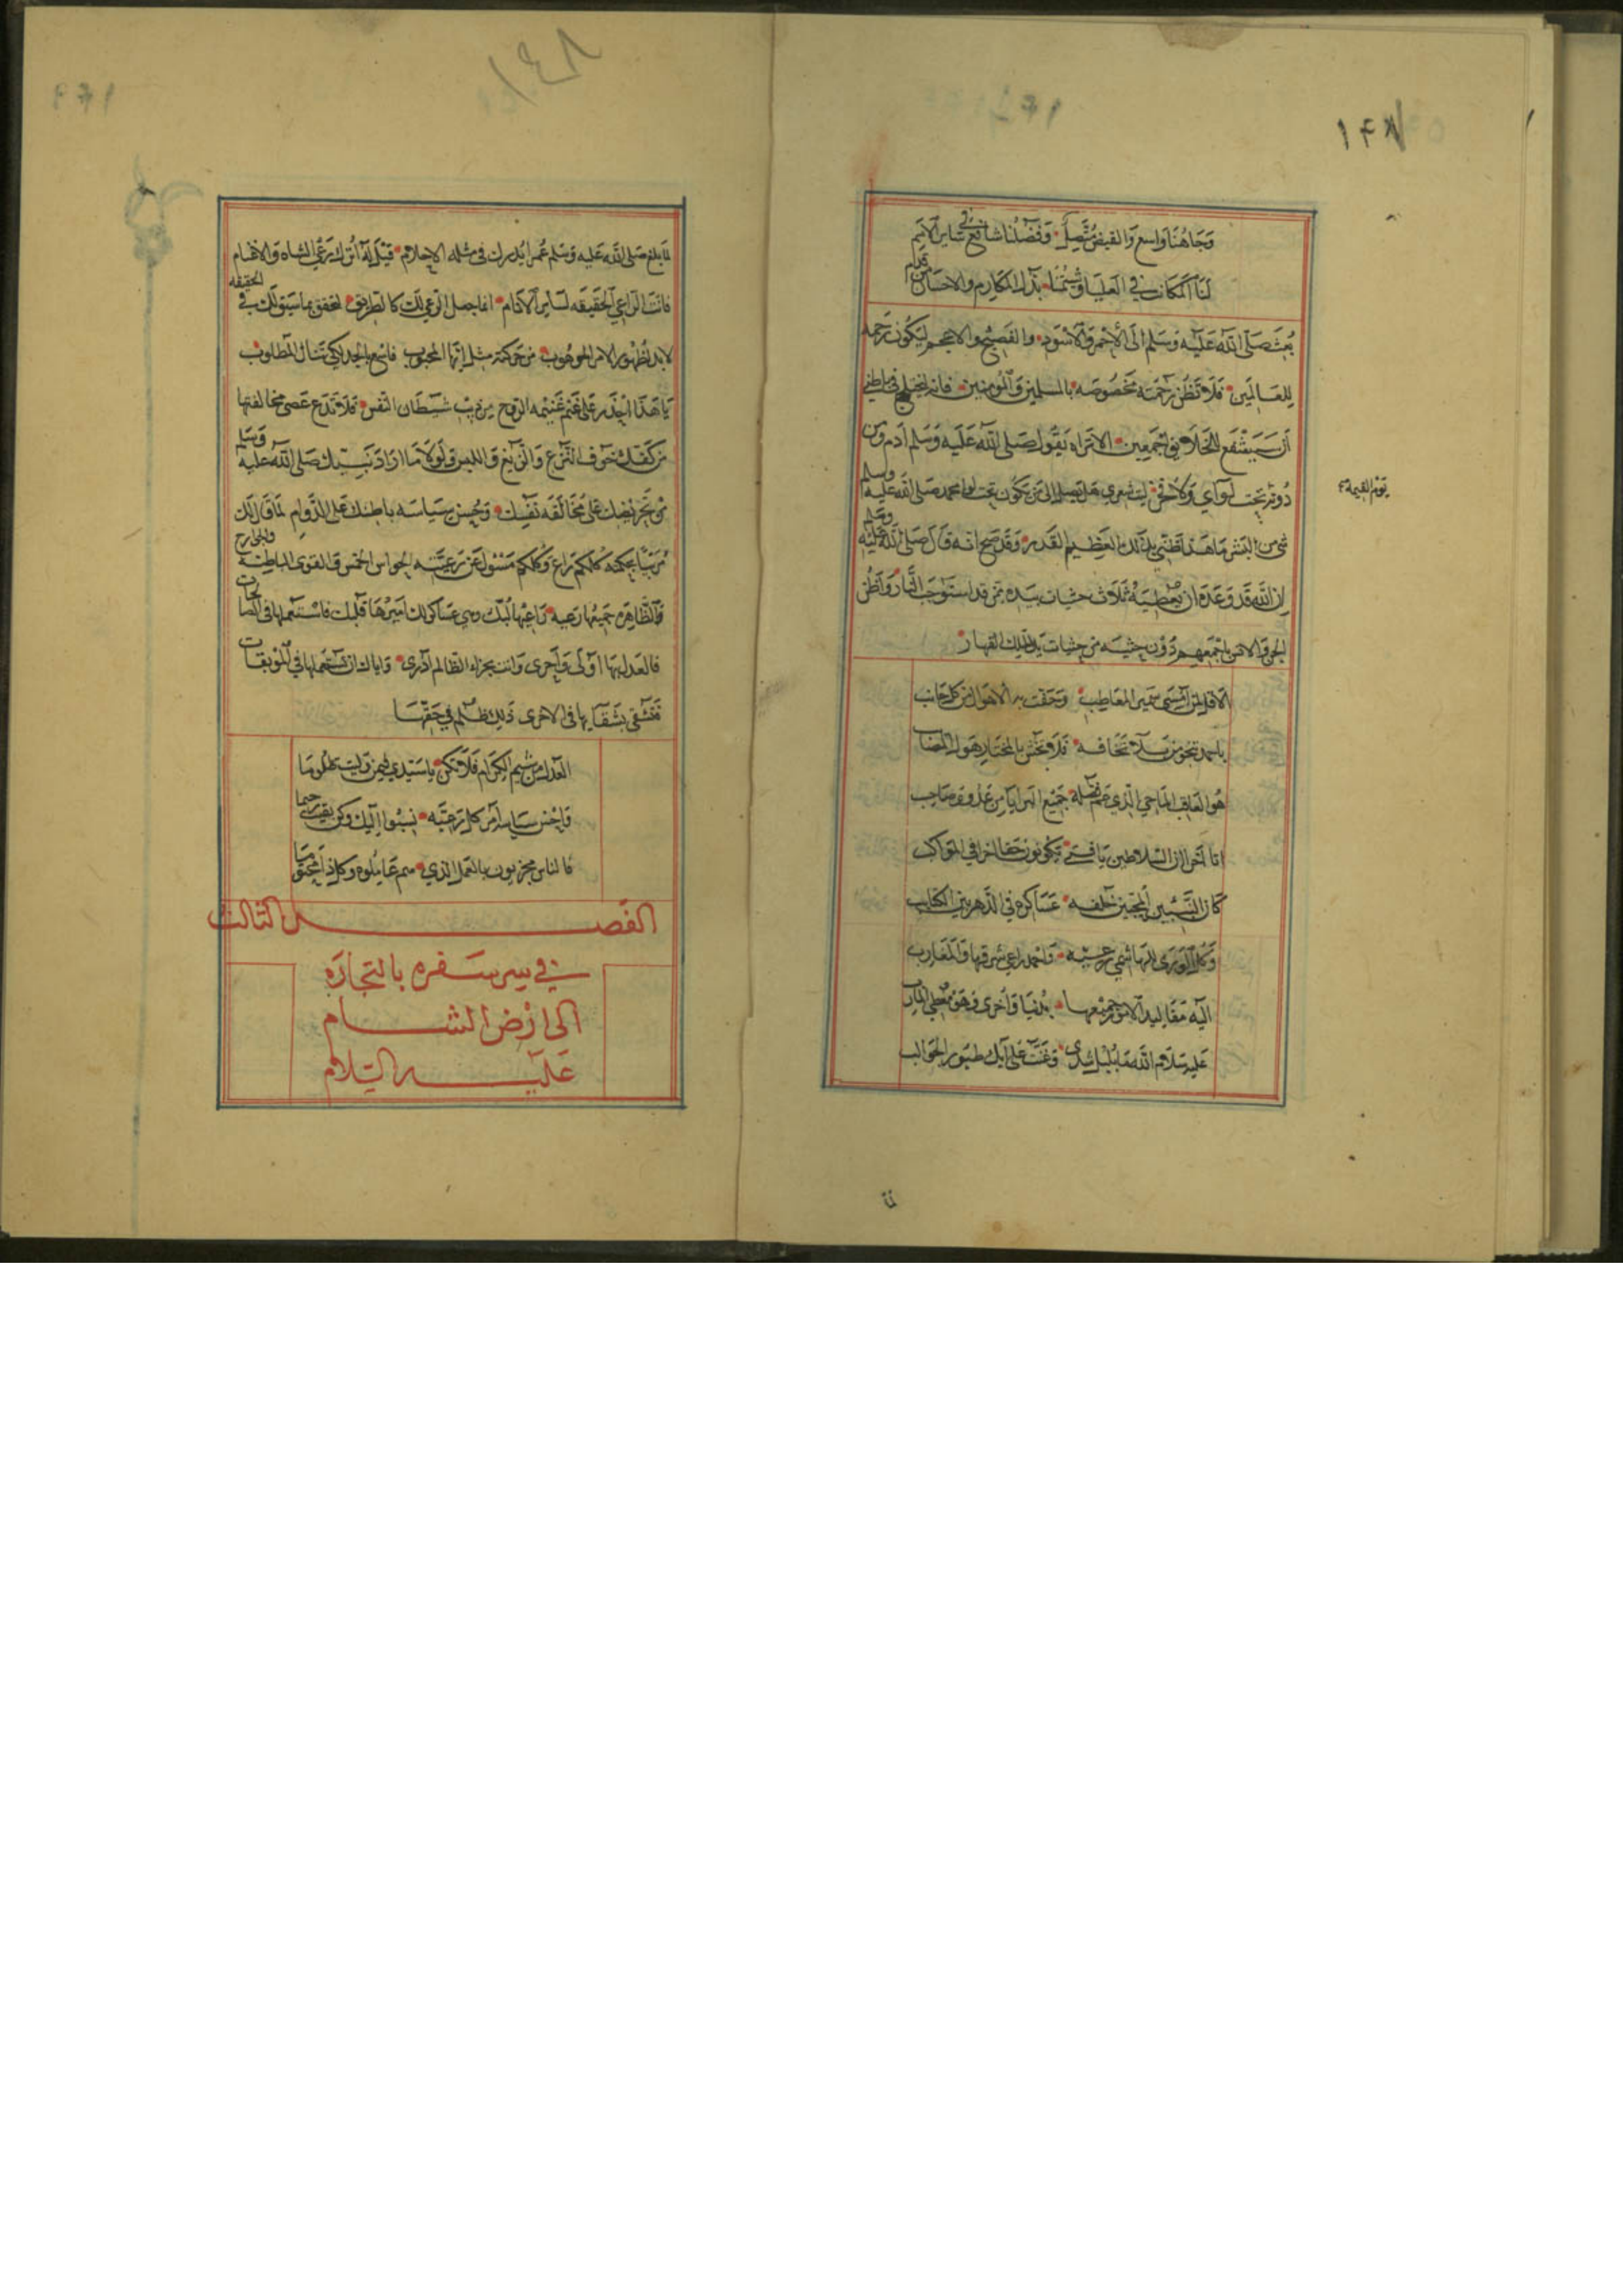 ١٤٧
وجاهنا واسع والفيض متصل وفضلنا شائع في سائر الامم
لنا المكان في العليا وشيمتنا بذل المكارم والاحسان من قدم
بعث صلى الله عليه وسلم الى الاحمر والاسود والفصيح والاعجم ليكون رحمه
للعالمين فلا تظن رحمته مخصوصه بالمسلمين والمومنين فانه يختلج في باطني
ان سيشفع للخلايق اجمعين الا تراه يقول صلى الله عليه وسلم ادم ومن
دونه تحت لوآي ولا فخر ليت شعري هل يصلى الى من تكون تحت لوا محمد صلى الله عليه وسلم
يوم القيمة
شي من البشر ما هذا ظني بذلك العظيم القدر وقد صح انه قال صلى الله عليه وسلم
ان الله قد وعده ان يعطيه ثلاث حثيات بيده ممن قد استوجب النار واظن
الجن والانس باجمعهم دون حثيه من حثيات يد الملك القهار
الا قل لمن امسى سمير المعاطب وحفت به الاهوال من كل جانب
باحمد تنجو من بلا تخافه فلا تخش بالمختار هول المصائب
هو العاقب الماحي الذي عم فضله جميع البرايا من عدو وصاحب
اما آخر ان السلاطين يا فتى يكونون حقا اخرا في المواكب
كان النبيين اجمعين خلفه عساكره في الدهر بين الكتايب
وكل الورى للهاشمي رعيه واحمد راعي شرقها والمغارب
اليه مقاليد الامور جميعها بدنيا واخرى فهو معطي المارب
عليه سلام الله ما بلبل شدى وغنت على ايك طيور
١٤٨
لما بلغ صلى الله عليه وسلم عمرا يدرك في مثله الاحلام قيل له اترك رعي الشاه والاغنام
فانت الراعي الحقيقه لساير الانام انما جعل الرعي لك كالطريق لتحقق بما سبق لك في الحقيقه
لابد لظهور الامر الموهوب من حركة مثل ايها المحبوب فاسع بالجد لكي تنال المطلوب
يا هذا احذر على غنم غنيمه الروح من ذيب شيطان النفس فلا تدع عصى مخالفتها
من كفك خوف النزغ والزيغ واللبس ولولا ما اراد نبيك صلى الله عليه وسلم
من تحريضك على مخالفه نفسك وحسن سياسه باطنك على الدوام لما قال لك
مرتبا بحكمته كلكم راع وكلكم مسئول عن رعيته الحواس الخمس والقوى الباطنه والجوارح
والظاهره جميعها رعيه راعيها لبك وهي عساكر لك اميرها قلبك فاستعملها في الصالحات
فالعدل بها اولى واحرى وانت بجزاء الظالم ادرى واياك ان تستعملها في الموبقات
فتشقى بشقايها في الاخرى ذلك ظلم في حقها
العدل من شيم الكرام فلا تكن يا سيدي فيمن وليت ظلوما
واحسن سياسة امر كل رعية نسبوا اليك وكن بهن رحيما
فالناس مجزيون بالعمل الذي هم عاملوه وكل ذا محتوما
الفصل الثالث
في سر سفره بالتجاره
الى ارض الشام
عليه السلام